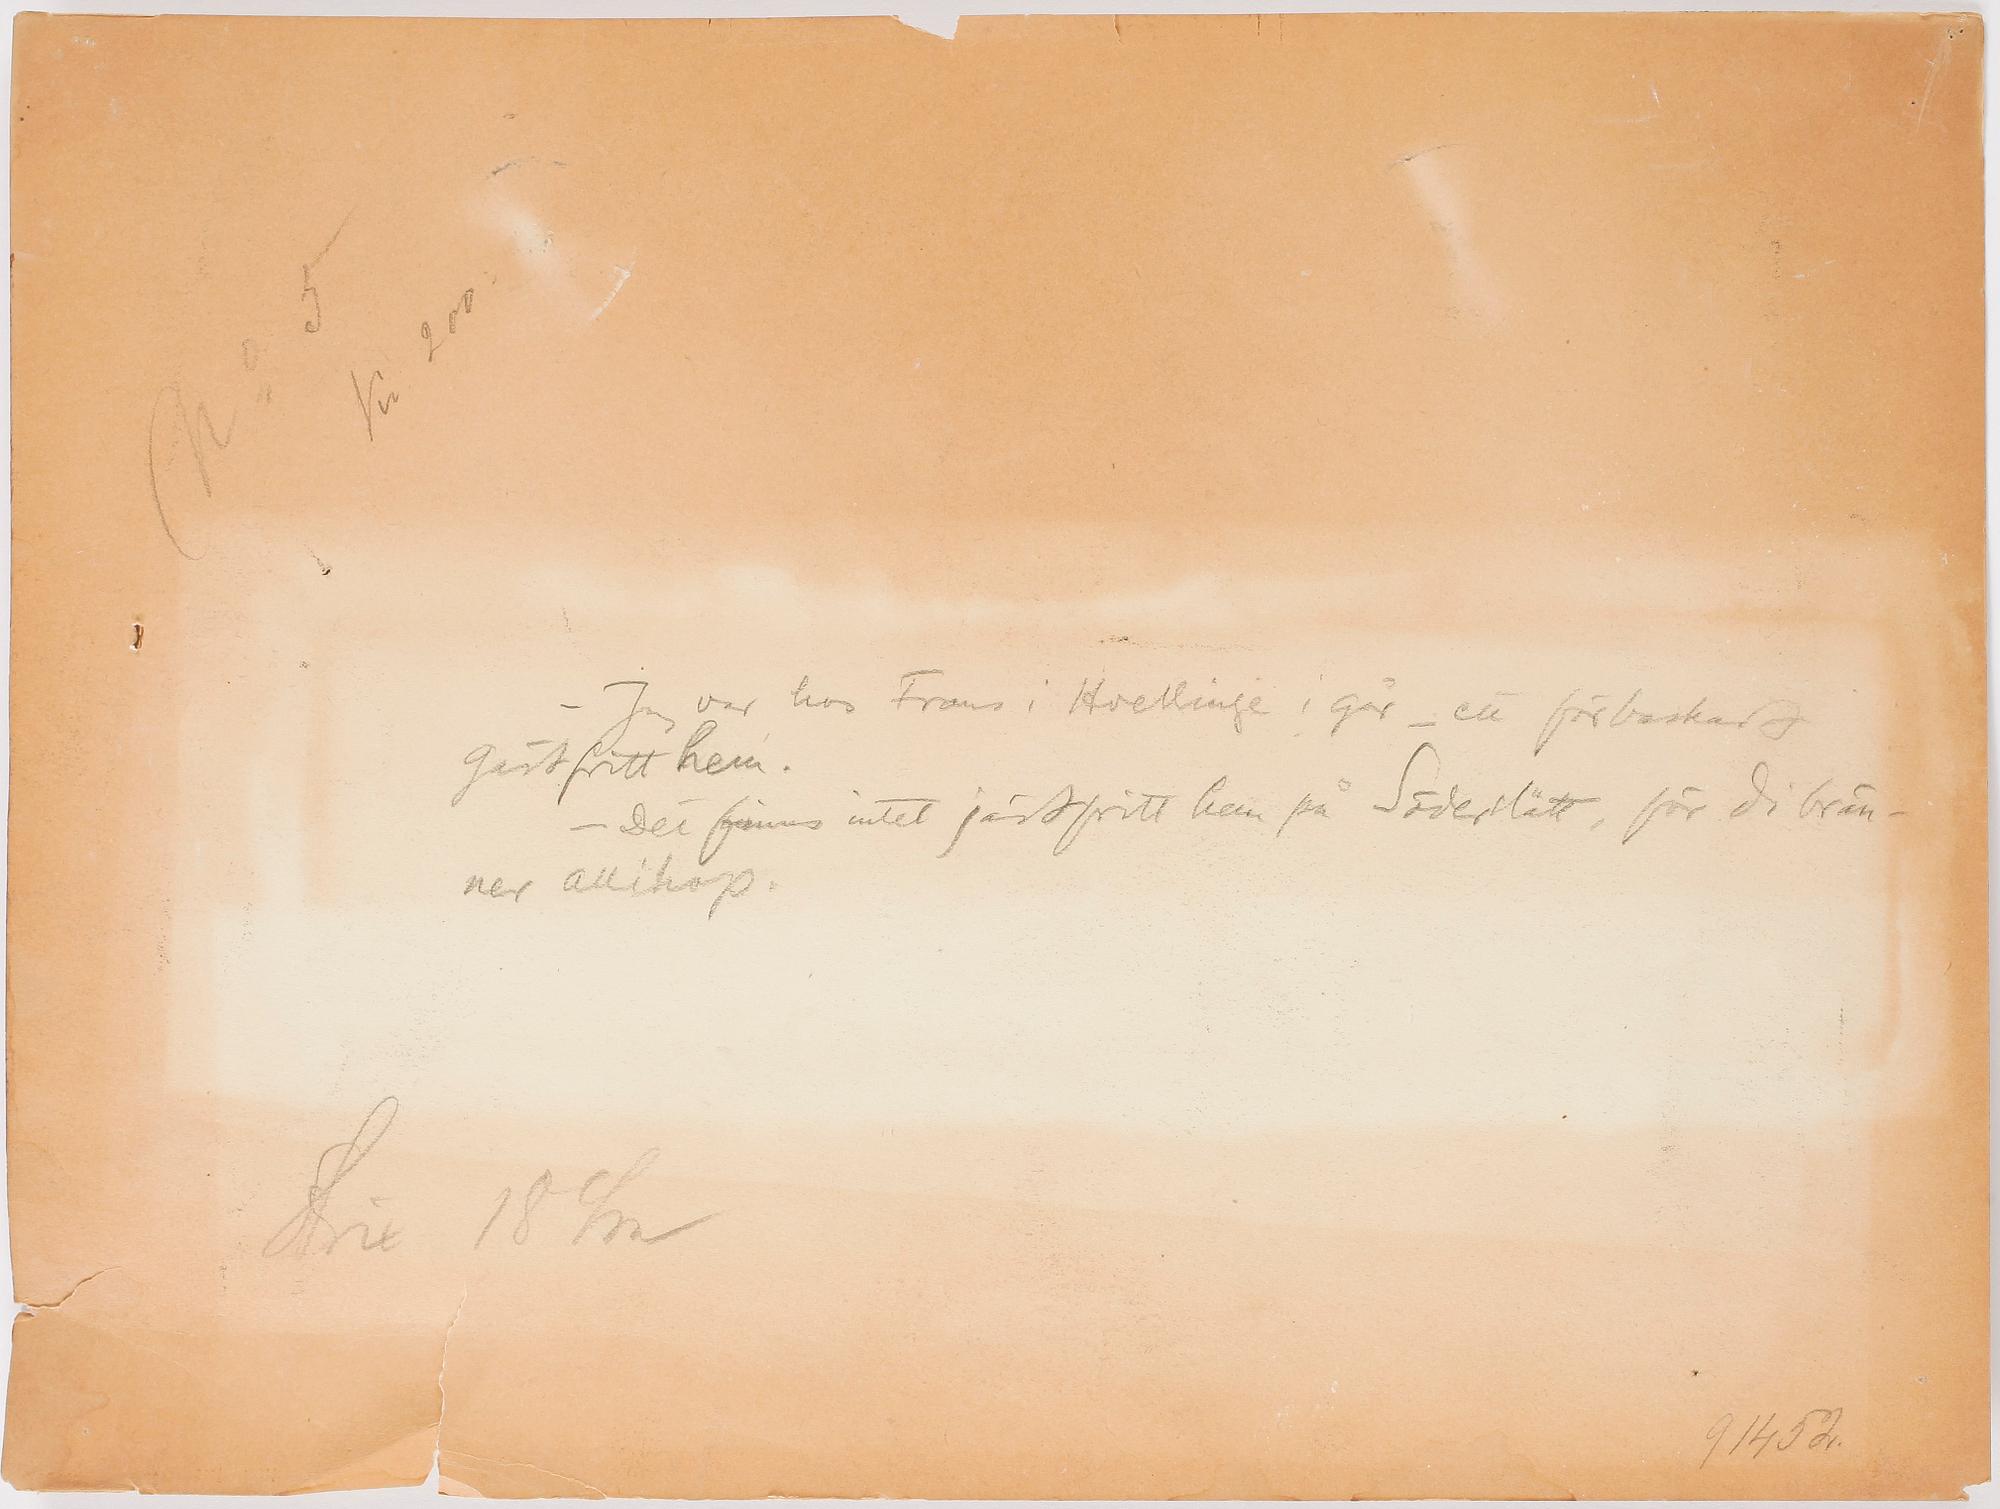 No 5
Kr 200.
– Jag var hos Frans i Hvellinge i går – ett förbaskat
gästfritt hem.
– Det finns intet jästfritt hem på Söderslätt, för di brän-
ner allihop.
Strix 18 cm
91452.